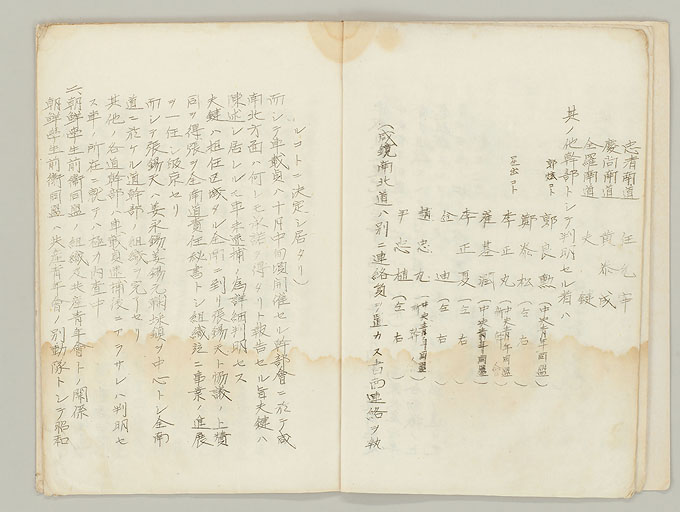 忠清南道 任允宰
慶尚南道 黄泰成
全羅南道 大鍵
其ノ他幹部トシテ判明セル者ハ
郭良勲(中央青年同盟)
鄭泰松(仝右)
李正允(中央青年同盟)
崔基潤(中央青年同盟)
李正夏(仝右)
金迪(仝右)
趙忠九(中央青年同盟)
尹忠植(仝右)
(咸鏡南北道ハ別ニ連絡員ヲ置カス占西連絡ヲ執
ルコトニ決定シ居タリ)
而シテ車載貞ハ十月中旬頃開催セル幹部會ニ於テ咸
南北方面ハ何レモ承諾ヲ得タリト報告セル旨大鍵ハ
陳述シ居レルモ車未逮捕ノ為詳細判明セス
大鍵ハ担任区域タル全南ニ到リ張錫天ト協議ノ上賛
同ヲ得張ヲ全南道責任秘書トシ組織並ニ事業ノ進展
ヲ一任シ皈京セリ
而シテ張錫天ハ姜永錫姜錫元鞠採鎮ヲ中心トシ全南
道ニ於ケル道幹部ノ組織ヲ完了セリ
其他ノ各道幹部ハ車載貞逮捕後ニアラサレハ判明セ
ス車ノ所在ニ就テハ極力内査中
二、朝鮮学生前衛同盟ノ組織及共産青年會トノ関係
朝鮮学生前衛同盟ハ共産青年會ノ別動隊トシテ昭和